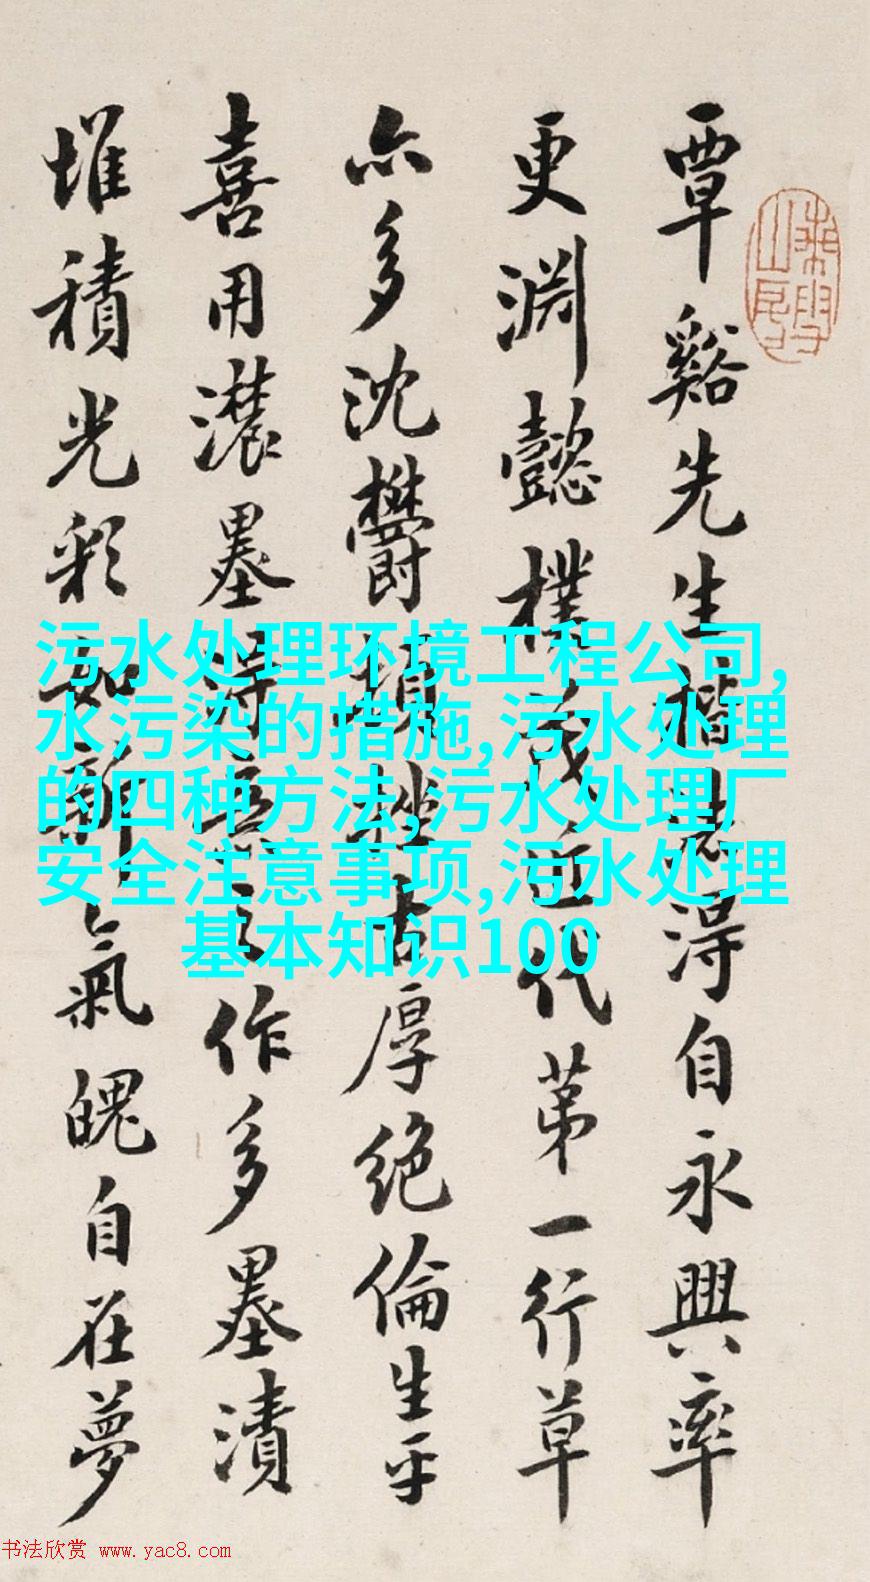 覃谿先生楷書得自永興率
更淵懿樸茂近代第一行草
亦多沈鬱頓挫古厚絕倫生平
喜用濃墨得意之作多墨漬
堆積光彩如新氣魄自在夢
污水处理环境工程公司,
水污染的措施,污水处理
的四种方法,污水处理厂
安全注意事项,污水处理
基本知识100
书法欣赏 www.yac8.com